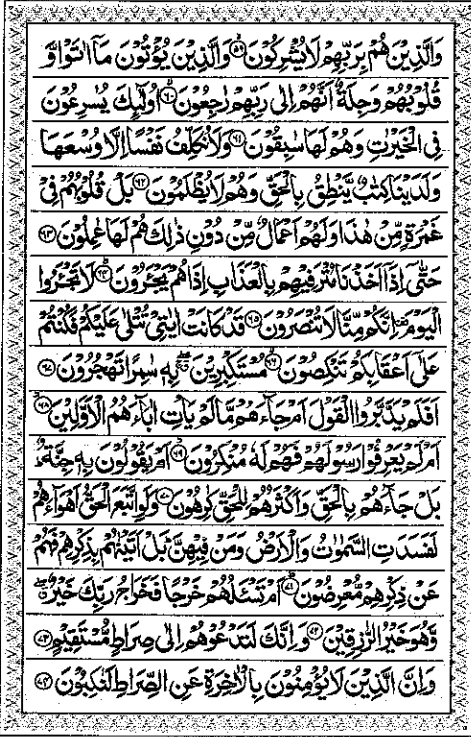 وَالَّذِيْنَ هُمْ بِرَبِّهِمْ لَا يُشْرِكُوْنَ ﴿۵۹﴾ وَالَّذِيْنَ يُؤْتُوْنَ مَآ اٰتَوْا وَّ
قُلُوْبُهُمْ وَجِلَةٌ اَنَّهُمْ اِلٰى رَبِّهِمْ رٰجِعُوْنَ ﴿۶۰﴾ اُولٰٓئِكَ يُسٰرِعُوْنَ
فِى الْخَيْرٰتِ وَهُمْ لَهَا سٰبِقُوْنَ ﴿۶۱﴾ وَلَا نُكَلِّفُ نَفْسًا اِلَّا وُسْعَهَا
وَلَدَيْنَا كِتٰبٌ يَّنْطِقُ بِالْحَقِّ وَهُمْ لَا يُظْلَمُوْنَ ﴿۶۲﴾ بَلْ قُلُوْبُهُمْ فِىْ
غَمْرَةٍ مِّنْ هٰذَا وَلَهُمْ اَعْمَالٌ مِّنْ دُوْنِ ذٰلِكَ هُمْ لَهَا عٰمِلُوْنَ ﴿۶۳﴾
حَتّٰٓى اِذَآ اَخَذْنَا مُتْرَفِيْهِمْ بِالْعَذَابِ اِذَا هُمْ يَجْـَٔرُوْنَ ﴿۶۴﴾ لَا تَجْـَٔرُوا
الْيَوْمَ اِنَّكُمْ مِّنَّا لَا تُنْصَرُوْنَ ﴿۶۵﴾ قَدْ كَانَتْ اٰيٰتِىْ تُتْلٰى عَلَيْكُمْ فَكُنْتُمْ
عَلٰٓى اَعْقَابِكُمْ تَنْكِصُوْنَ ﴿۶۶﴾ مُسْتَكْبِرِيْنَ بِهٖ سٰمِرًا تَهْجُرُوْنَ ﴿۶۷﴾
اَفَلَمْ يَدَّبَّرُوا الْقَوْلَ اَمْ جَآءَهُمْ مَّا لَمْ يَاْتِ اٰبَآءَهُمُ الْاَوَّلِيْنَ ﴿۶۸﴾
اَمْ لَمْ يَعْرِفُوْا رَسُوْلَهُمْ فَهُمْ لَهٗ مُنْكِرُوْنَ ﴿۶۹﴾ اَمْ يَقُوْلُوْنَ بِهٖ جِنَّةٌ
بَلْ جَآءَهُمْ بِالْحَقِّ وَاَكْثَرُهُمْ لِلْحَقِّ كٰرِهُوْنَ ﴿۷۰﴾ وَلَوِ اتَّبَعَ الْحَقُّ اَهْوَآءَهُمْ
لَفَسَدَتِ السَّمٰوٰتُ وَالْاَرْضُ وَمَنْ فِيْهِنَّ بَلْ اَتَيْنٰهُمْ بِذِكْرِهِمْ فَهُمْ
عَنْ ذِكْرِهِمْ مُّعْرِضُوْنَ ﴿۷۱﴾ اَمْ تَسْـَٔلُهُمْ خَرْجًا فَخَرَاجُ رَبِّكَ خَيْرٌ
وَّهُوَ خَيْرُ الرّٰزِقِيْنَ ﴿۷۲﴾ وَاِنَّكَ لَتَدْعُوْهُمْ اِلٰى صِرَاطٍ مُّسْتَقِيْمٍ ﴿۷۳﴾
وَاِنَّ الَّذِيْنَ لَا يُؤْمِنُوْنَ بِالْاٰخِرَةِ عَنِ الصِّرَاطِ لَنٰكِبُوْنَ ﴿۷۴﴾